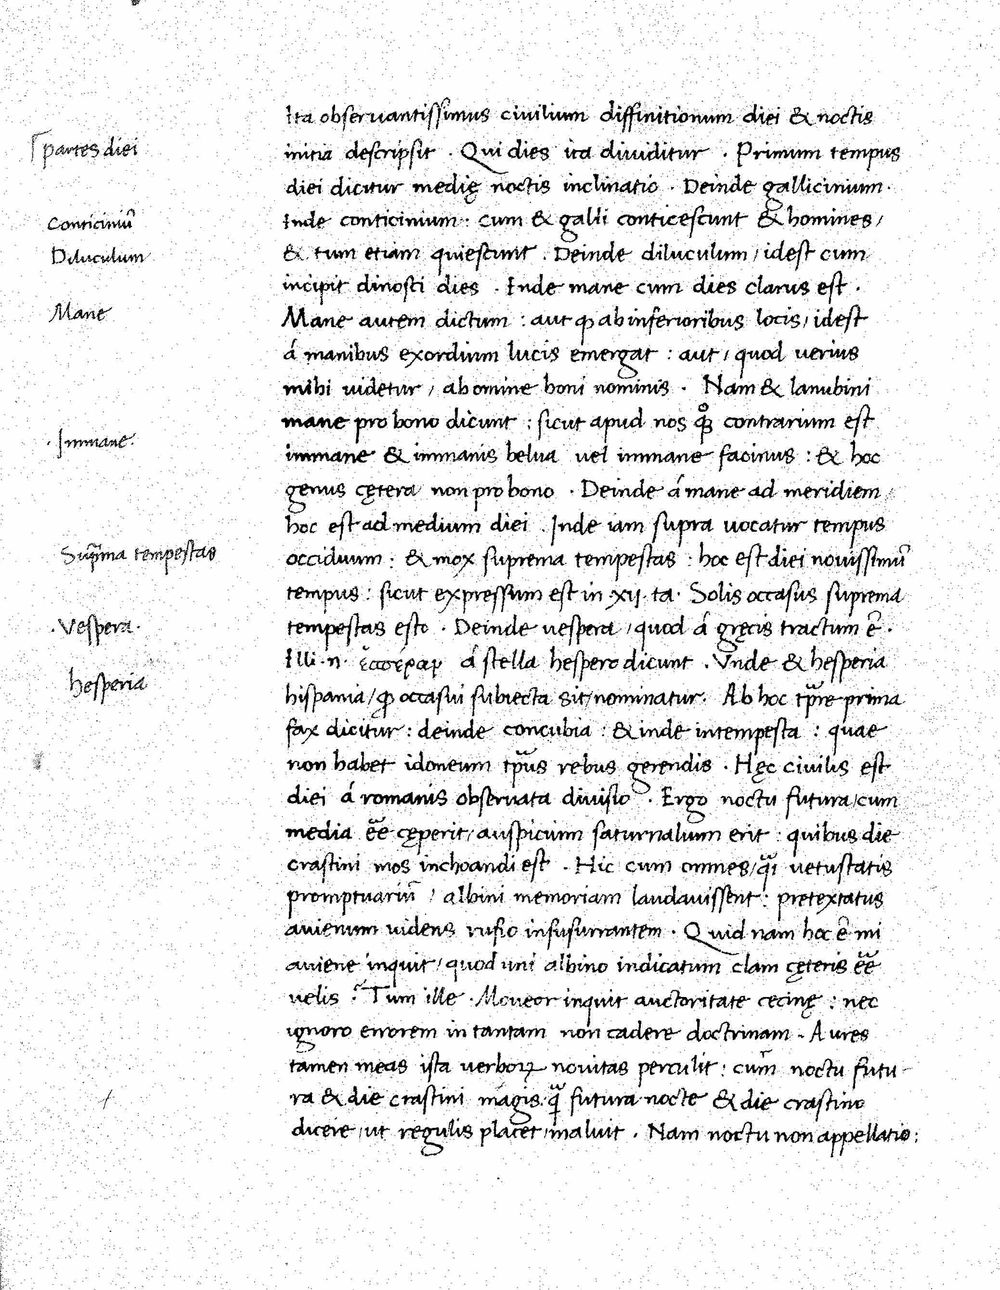 Ita obseruantissimus ciuilium diffinitionum diei & noctis
partes diei
initia descripsit . Qui dies ita diuiditur . Primum tempus
diei dicitur medię noctis inclinatio . Deinde gallicinium .
Conticiniū
Inde conticinium : cum & galli conticescunt & homines /
Diluculum
& tum etiam quiescunt . Deinde diluculum / idest cum
incipit dinosci dies . Inde mane cum dies clarus est .
Mane
Mane autem dictum : aut ꝙ ab inferioribus locis / idest
á manibus exordium lucis emergat : aut / quod uerius
mihi uidetur / ab omine boni nominis . Nam & lanubini
mane pro bono dicunt : sicut apud nos contrarium est
. Immane .
immane & immanis belua uel immane facinus : & hoc
genus cętera non pro bono . Deinde á mane ad meridiem /
hoc est ad medium diei . Inde iam supra uocatur tempus
tempestas
occiduum : & mox suprema tempestas : hoc est diei nouissimū
tempus : sicut expressum est in .xij. ta . Solis occasus suprema
. Vespera .
tempestas esto . Deinde uespera / quod á gręcis tractum ē .
Illi .n. á stella hespero dicunt . Vnde & hesperia
hesperia
hispania / ꝙ occasui subiecta sit / nominatur . Ab hoc tp̄re prima
fax dicitur : deinde concubia : & inde intempesta : quae
non habet idoneum tp̄us rebus gerendis . Hęc ciuilis est
diei á romanis obseruata diuisio . Ergo noctu futura / cum
media ēē cęperit / auspicium saturnalium erit : quibus die
crastini mos inchoandi est . Hic cum omnes / q̄i uetustatis
promptuariū / albini memoriam laudauissent : pretextatus
auienum uidens rufio insusurrantem . Quid nam hoc ē mi
auiene inquit / quod uni albino indicatum clam cęteris ēē
uelis ? Tum ille . Moueor inquit auctoritate cecinę : nec
ignoro errorem in tantam non cadere doctrinam . Aures
tamen meas ista uerboꝝ nouitas perculit : cum noctu futu
ra & die crastini magis q̄ futura nocte & die crastino
dicere / ut regulis placet / maluit . Nam noctu non appellatio :